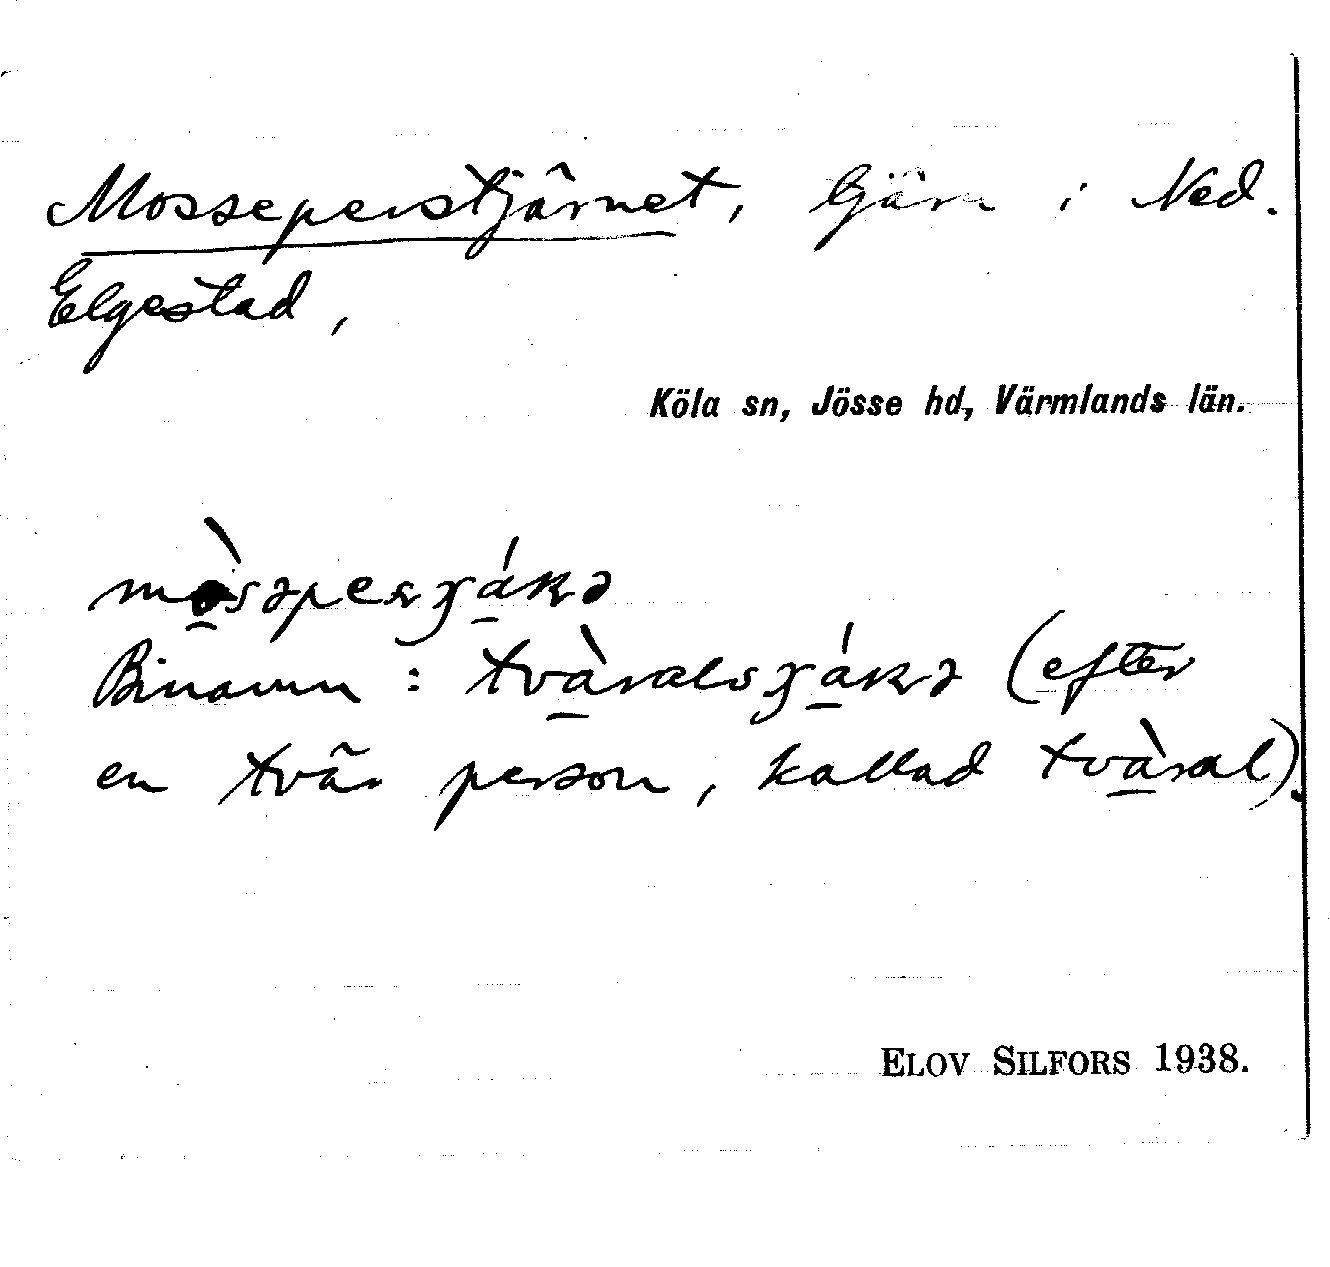 Mosseperstjärnet, tjärn i Ned.
Elgestad,
Köla sn, Jösse hd, Värmlands län.
Binamn : (efter
en tvär person, kallad tvàral).
ELOV SILFORS 1938.